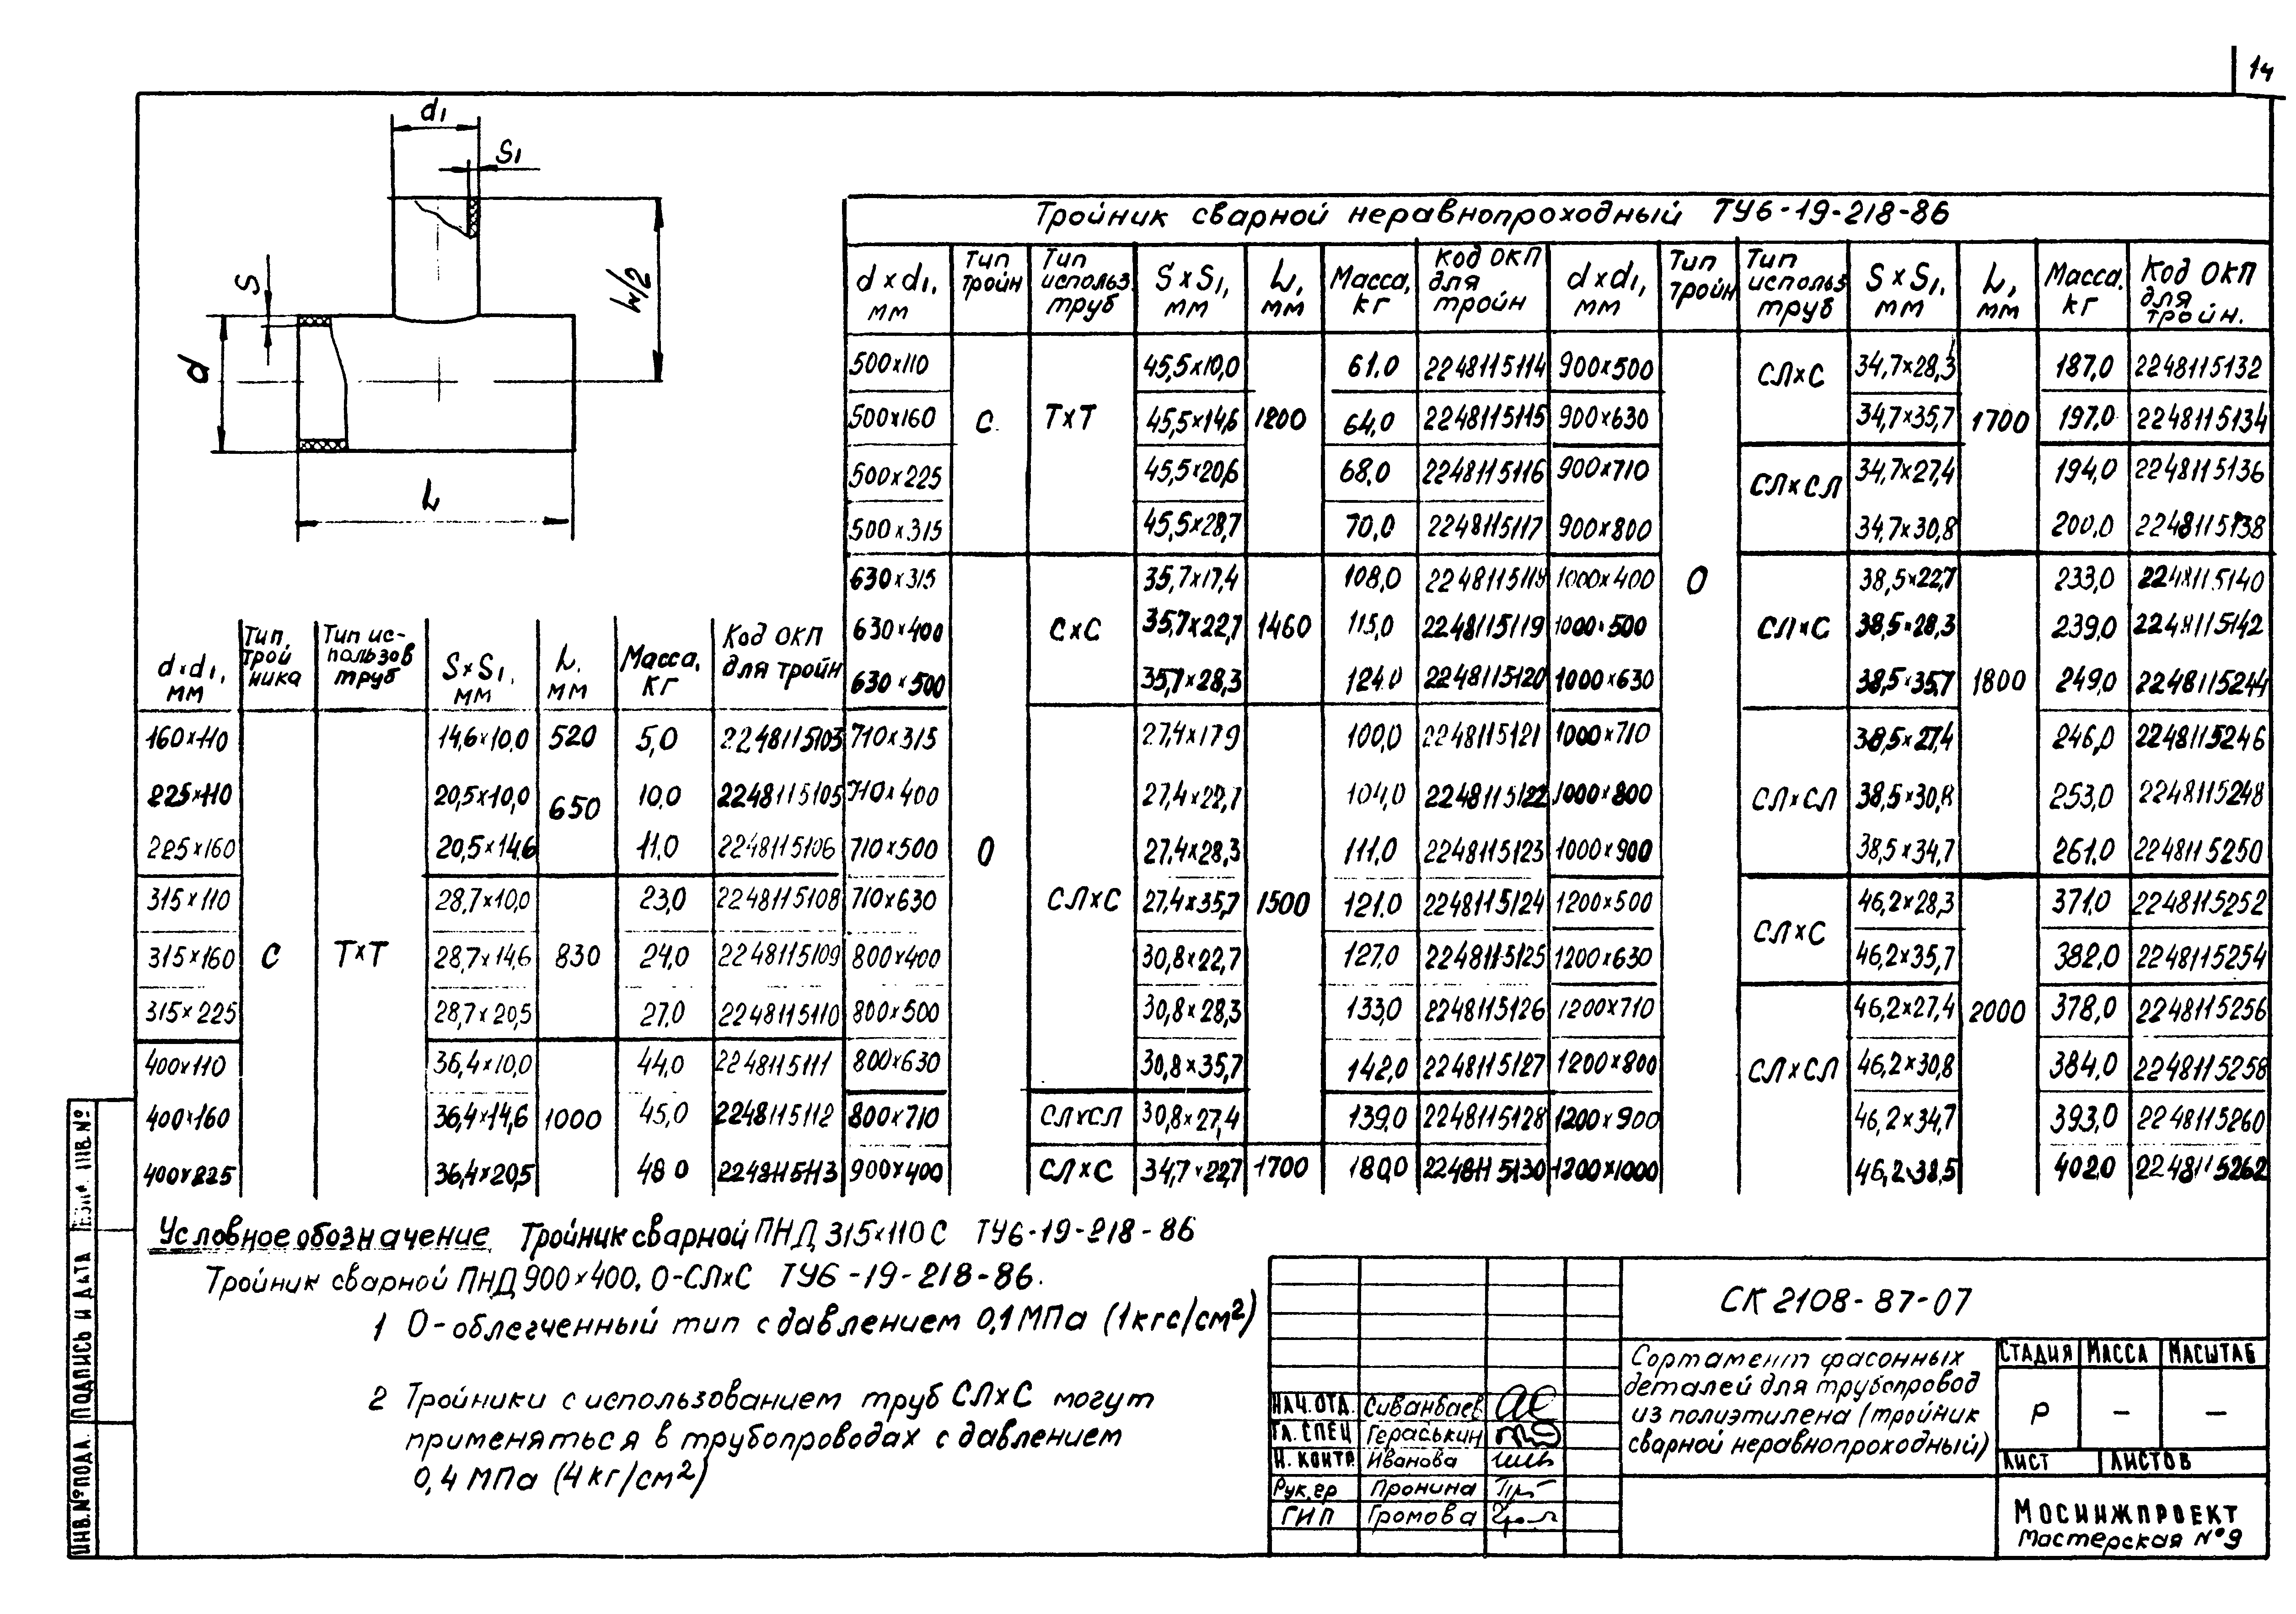 14
d1
S1
S
L/2
d
L
Тройник сварной неравнопроходный ТУ6-19-218-86
d x d1, мм | Тип тройн | Тип использ труб | S x S1, мм | L, мм | Масса, кг | Код ОКП для тройн | d x d1, мм | Тип тройн | Тип использ труб | S x S1, мм | L, мм | Масса, кг | Код ОКП для тройн.
500x110 | 45,5x10,0 | 61.0 | 2248115114 | 900x500 | СЛxС | 34,7x28,3 | 187,0 | 2248115132
500x160 | С | ТxТ | 45,5x14,6 | 1200 | 64,0 | 2248115115 | 900x630 | 34,7x35,7 | 1700 | 197,0 | 2248115134
500x225 | 45,5x20,6 | 68,0 | 2248115116 | 900x710 | СЛxСЛ | 34,7x27,4 | 194,0 | 2248115136
500x315 | 45,5x28,7 | 70,0 | 2248115117 | 900x800 | 34,7x30,8 | 200,0 | 2248115138
630x315 | 35,7x17,4 | 108,0 | 2248115118 | 1000x400 | О | 38,5x22,7 | 233,0 | 2248115140
630x400 | СxС | 35,7x22,7 | 1460 | 115,0 | 2248115119 | 1000x500 | СЛxС | 38,5x28,3 | 239,0 | 2248115142
630x500 | 35,7x28,3 | 124,0 | 2248115120 | 1000x630 | 38,5x35,7 | 1800 | 249,0 | 2248115244
710x315 | 27,4x17,9 | 100,0 | 2248115121 | 1000x710 | 38,5x27,4 | 246,0 | 2248115246
710x400 | 27,4x22,7 | 104,0 | 2248115122 | 1000x800 | СЛxСЛ | 38,5x30,8 | 253,0 | 2248115248
710x500 | О | 27,4x28,3 | 111,0 | 2248115123 | 1000x900 | 38,5x34,7 | 261.0 | 2248115250
710x630 | СЛxС | 27,4x35,7 | 1500 | 121.0 | 2248115124 | 1200x500 | СЛxС | 46,2x28,3 | 371.0 | 2248115252
800x400 | 30,8x22,7 | 127.0 | 2248115125 | 1200x630 | 46,2x35,7 | 382,0 | 2248115254
800x500 | 30,8x28,3 | 133,0 | 2248115126 | 1200x710 | 46,2x27,4 | 2000 | 378,0 | 2248115256
800x630 | 30,8x35,7 | 142,0 | 2248115127 | 1200x800 | СЛxСЛ | 46,2x30,8 | 384,0 | 2248115258
800x710 | СЛxСЛ | 30,8x27,4 | 139,0 | 2248115128 | 1200x900 | 46,2x34,7 | 393,0 | 2248115260
900x400 | СЛxС | 34,7x22,7 | 1700 | 180,0 | 2248115130 | 1200x1000 | 46,2x38,5 | 402,0 | 2248115262
d x d1, мм | Тип тройника | Тип использов труб | S x S1, мм | L, мм | Масса, кг | Код ОКП для тройн
160x110 | 14,6x10,0 | 520 | 5,0 | 2248115103
225x110 | 20,5x10,0 | 650 | 10,0 | 2248115105
225x160 | 20,5x14,6 | 11,0 | 2248115106
315x110 | 28,7x10,0 | 23,0 | 2248115108
315x160 | С | ТxТ | 28,7x14,6 | 830 | 24,0 | 2248115109
315x225 | 28,7x20,5 | 27.0 | 2248115110
400x110 | 36,4x10,0 | 44,0 | 2248115111
400x160 | 36,4x14,6 | 1000 | 45,0 | 2248115112
400x225 | 36,4x20,5 | 48 0 | 2248115113
Условное обозначение Тройник сварной ПНД 315x110 С ТУ6-19-218-86
Тройник сварной ПНД 900x400, О-СЛxС ТУ6-19-218-86.
1 О-облегченный тип с давлением 0,1 МПа (1кгс/см²)
2 Тройники с использованием труб СЛxС могут
применяться в трубопроводах с давлением
0,4 МПа (4кг/см²)
ИНВ.№ПОДЛ. ПОДПИСЬ И ДАТА ИНВ.№
СК 2108-87-07
Сортамент фасонных
деталей для трубопровод
из полиэтилена (тройник
сварной неравнопроходный)
СТАДИЯ МАССА МАСШТАБ
Р – –
ЛИСТ ЛИСТОВ
НАЧ.ОТД. Сиванбаев
ГЛ.СПЕЦ Гераськин
Н.КОНТР. Иванова
Рук.гр Пронина
ГИП Громова
МОСИНЖПРОЕКТ
Мастерская №9